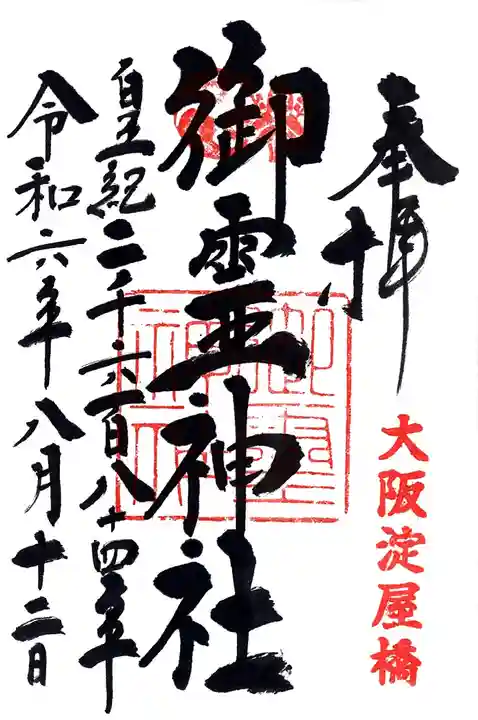 奉拝
大阪淀屋橋
御霊神社
皇紀二千六百八十四年
令和六年八月十二日